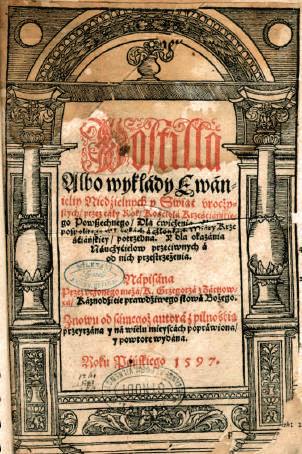 Postilla
Albo wykłády Ewán-
ieliy Niedźielnych y Swiąt vroczy-
stych/ przez cáły Rok/ Kośćiołá Krześćiáńskie-
go Powszechnego/ Dla ćwiczenia
Krze
śćiáńskiey/ potrzebna. Y dla okazánia
Náuczyćielow przećiwnych á
od nich przestrzeżenia.
Nápisána
Przez vczonego mężá/ K. Grzegorzá z Zarnowcá/
Káznodźieie prawdźiwego słowá Bożego.
Znowu od sámego autorá z pilnośćią
przeyrzána y ná wielu mieyscách popráwiona/
y powtore wydána.
Roku Páńskiego 1597.